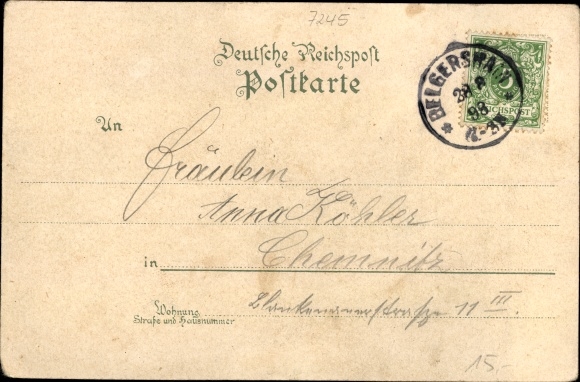 7245
Deutsche Reichspost
Postkarte
BELGERSHAIN
28 8
98
8-9N
REICHSPOST
An
Fräulein
Anna Köhler
in Chemnitz
Wohnung
Straße und Hausnummer
Blankenauerstraße 11 III.
15.-